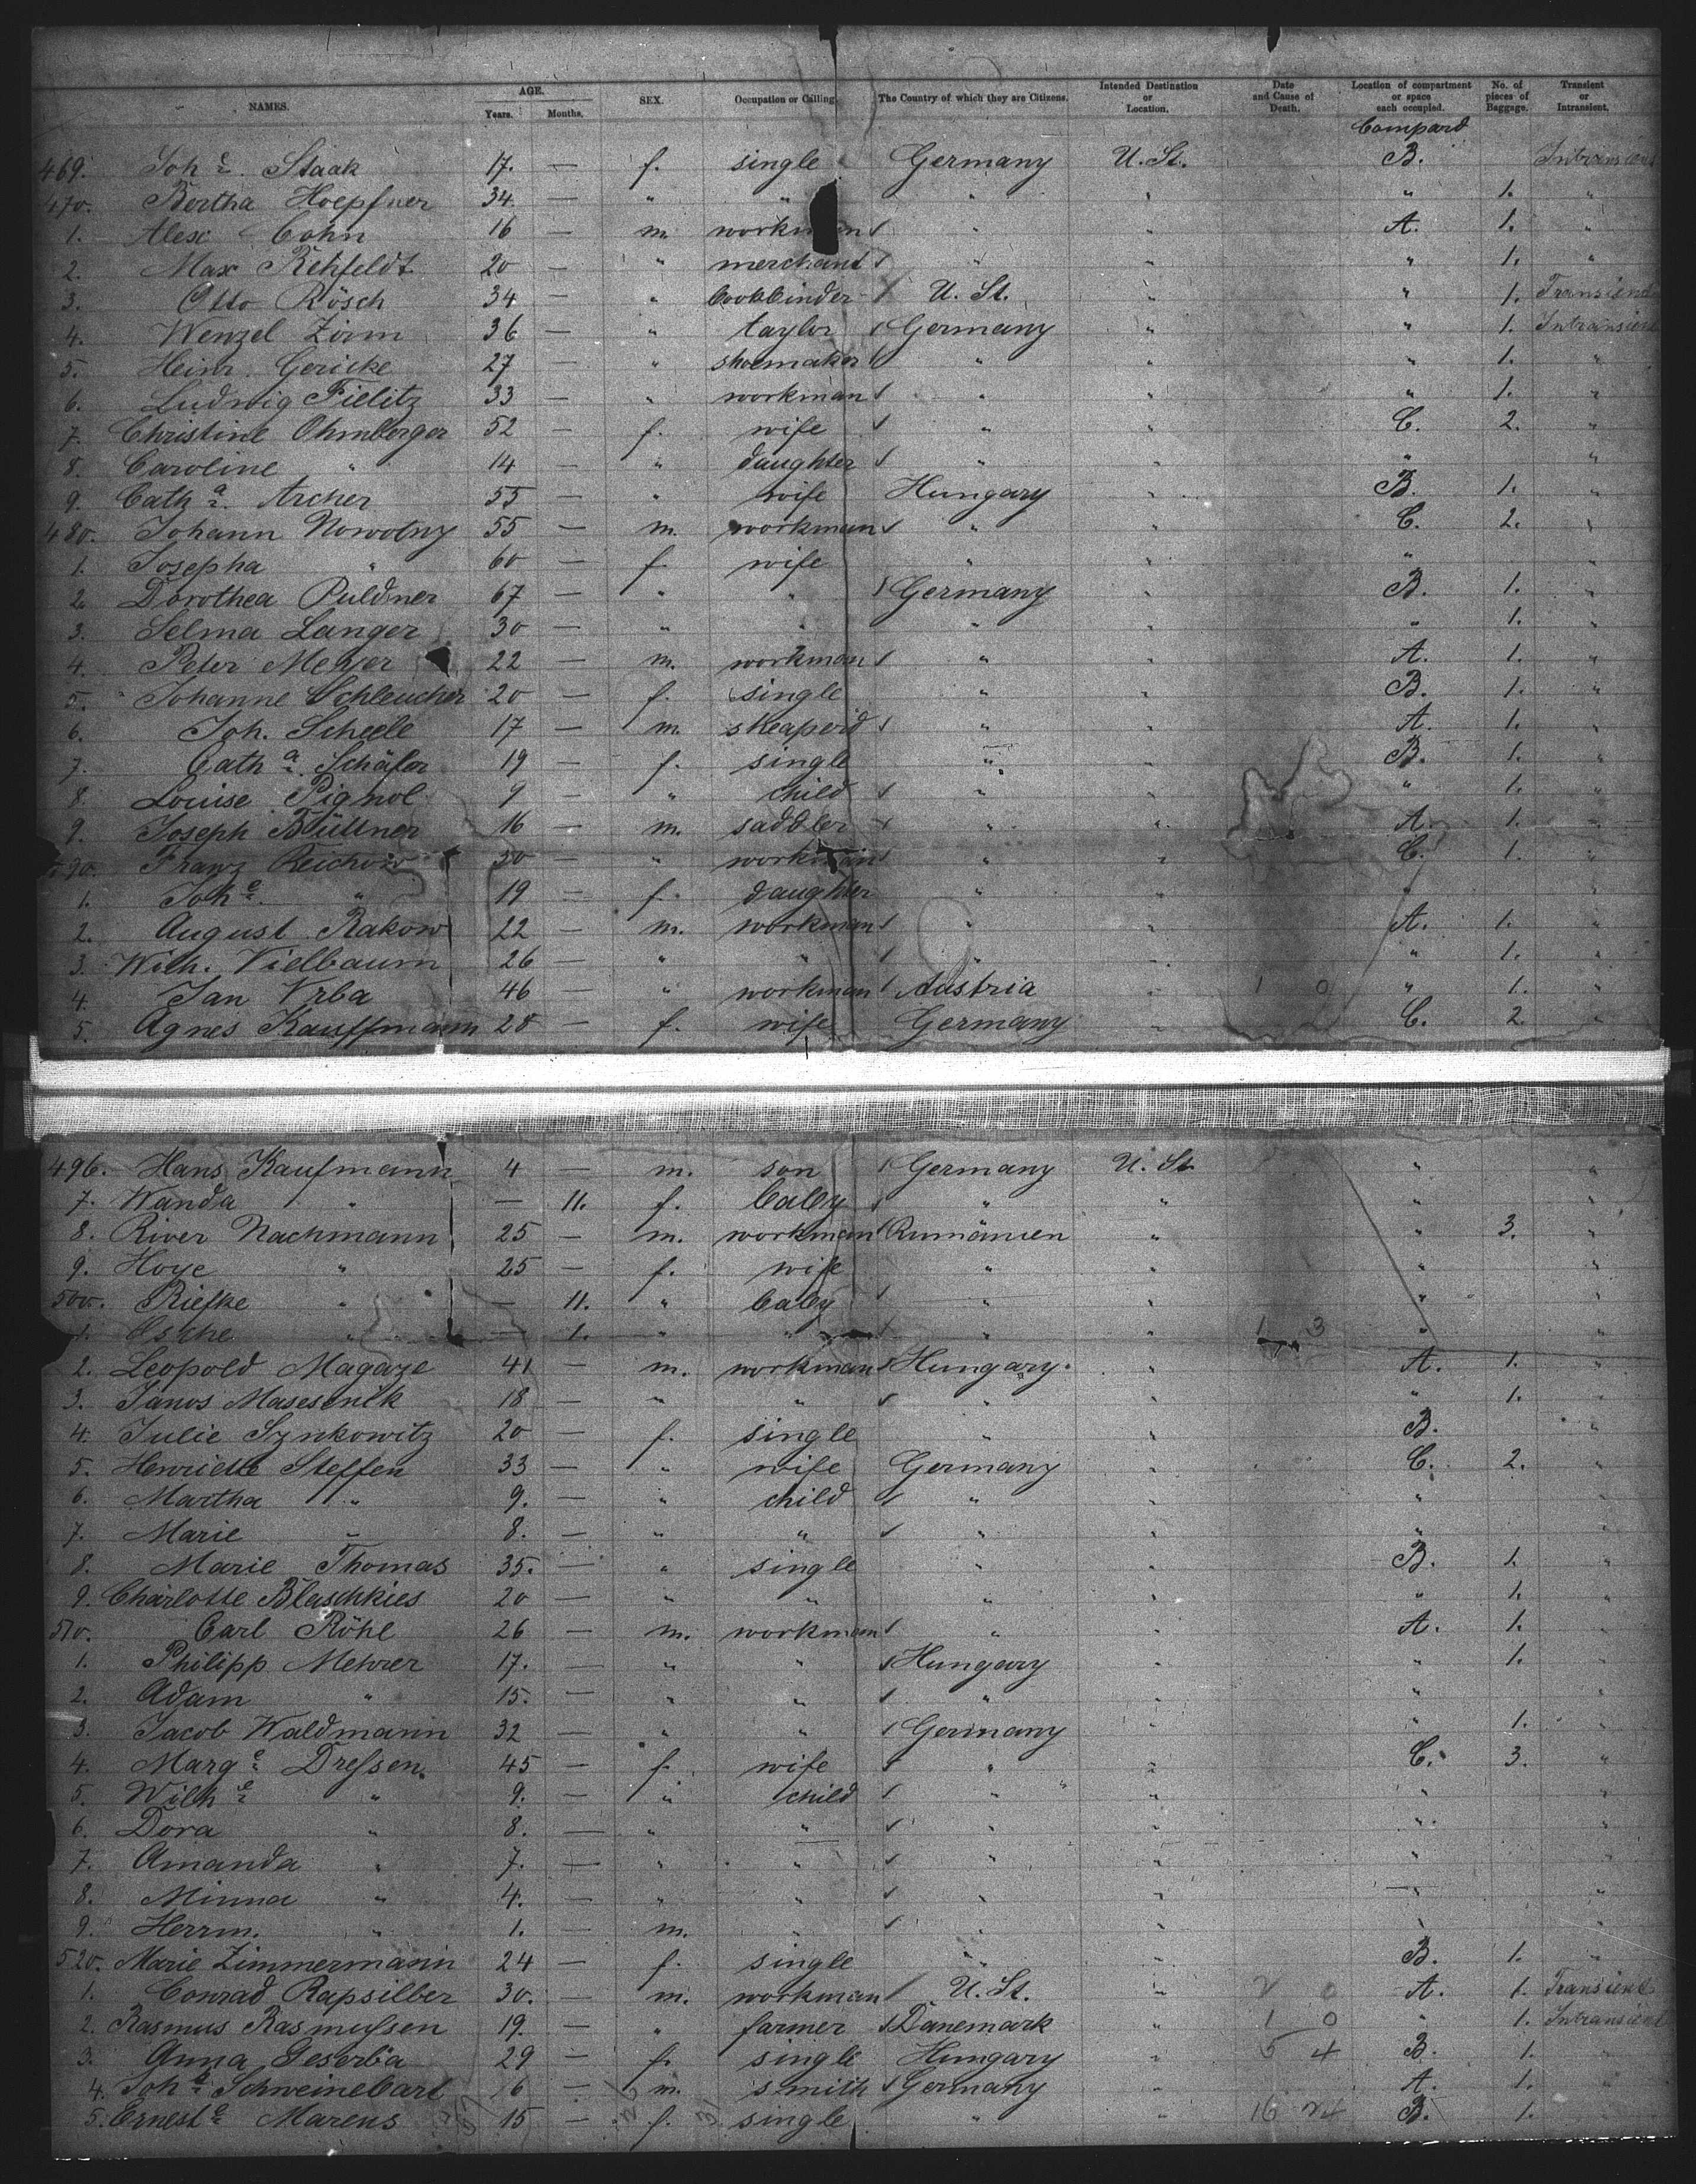 NAMES. AGE. Years. Months. SEX. Occupation or Calling. The Country of which they are Citizens. Intended Destination or Location. Date and Cause of Death. Location of compartment or space each occupied. No. of pieces of Baggage. Transient or Intransient.
Compard
469. Joh e. Staak 17. — f. single Germany U. St. B. Intransient
470. Bertha Hoepfner 34. — " " " " " 1. "
1. Alex Cohn 16 — m. workman " " A. 1. "
2. Max Rehfeldt 20 — " merchant " " " 1. "
3. Otto Rösch 34 — " bookbinder U. St. " " 1. Transient
4. Wenzel Zirm 36 — " taylor Germany " " 1. Intransient
5. Heinr. Gericke 27 — " shoemaker " " " 1. "
6. Ludwig Fielitz 33 — " workman " " " 1. "
7. Christine Ohmberger 52 — f. wife " " C. 2. "
8. Caroline " 14 — " daughter " " " "
9. Cath a. Archer 55 — " wife Hungary " B. 1. "
480. Johann Nowotny 55 — m. workman " " C. 2. "
1. Josepha " 60 — f. wife " " "
2. Dorothea Puldner 67 — " " Germany " B. 1. "
3. Selma Langer 30 — " " " " " 1. "
4. Peter Meyer 22 — m. workman " " A. 1. "
5. Johanne Schleucher 20 — f. single " " B. 1. "
6. Joh. Scheele 17 — m. " " A. 1. "
7. Cath a. Schäfer 19 — f. single " " B. 1. "
8. Louise Pignol 9 — " child " " " 1. "
9. Joseph Büttner 16 — m. saddler " " A. 1. "
490. Franz Reichow 50 — " workman " " C. 1. "
1. Joh e. " 19 — f. daughter " " " "
2. August Rakow 22 — m. workman " " A. 1. "
3. Wilh. Vielbaum 26 — " " " " " 1. "
4. Jan Vrba 46 — " workman Austria " 1 0 " 1. "
5. Agnes Kauffmann 28 — f. wife Germany " C. 2. "
496. Hans Kaufmann 4 — m. son Germany U. St. " "
7. Wanda " — 11. f. baby " " " "
8. River Nachmann 25 — m. workman Rumänien " " 3. "
9. Hoye " 25 — f. wife " " " "
500. Riefke " — 11. " baby " " " "
1. " — 1. " " " " 1 3 " "
2. Leopold Magaze 41 — m. workman Hungary. " A. 1. "
3. Janos 18 — " " " " " 1. "
4. Julie Synkowitz 20 — f. single " " B. "
5. Henriette Steffen 33 — " wife Germany " C. 2. "
6. Martha " 9. — " child " " " "
7. Marie " 8. — " " " " " "
8. Marie Thomas 35. — " single " " B. 1. "
9. Charlotte Blaschkies 20 — " " " " " 1. "
510. Carl Röhl 26 — m. workman " " A. 1. "
1. Philipp Mehrer 17. — " " Hungary " " 1. "
2. Adam " 15. — " " " " " "
3. Jacob Waldmann 32 — " " Germany " " 1. "
4. Marg e. Dreſsen. 45 — f. wife " " C. 3. "
5. Wilh e. " 9. — " child " " " "
6. Dora " 8. — " " " " " "
7. Amanda " 7. — " " " " " "
8. Minna " 4. — " " " " " "
9. Herrm. " 1. — m. " " " " "
520. Marie Zimmermann 24 — f. single " " B. 1. "
1. Conrad Rapsilber 30. — m. workman U. St. " 2 0 A. 1. Transient
2. Rasmus Rasmuſsen 19. — " farmer Dänemark " 1 0 " 1. Intransient
3. Anna 29 — f. single Hungary " 5 4 B. 1. "
4. Joh s. Schweinebart 16 — m. smith Germany " A. 1. "
5. Ernest e. Marcus 15 — f. single " " 16 24 B. 1. "